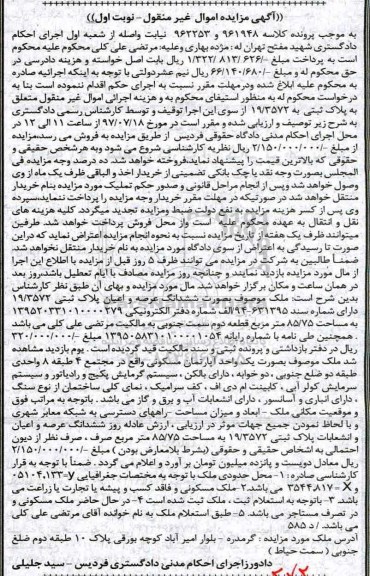 ((آگهی مزایده اموال غیر منقول - نوبت اول))
به موجب پرونده کلاسه ۹۶۱۹۴۸ و ۹۶۲۲۵۳ نیابت واصله از شعبه اول اجرای احکام
دادگستری شهید مفتح تهران له : مژده بهاری وعلیه: مرتضی علی کلی محکوم علیه محکوم
است به پرداخت مبلغ -/۱/۳۲۲/ ۸۱۳ /۶۲۶ ریال بابت اصل خواسته و هزینه دادرسی در
حق محکوم له و مبلغ -/۶۶/۱۴۰/۶۸۰ ریال نیم عشردولتی با توجه به اینکه اجرائیه صادره
به محکوم علیه ابلاغ شده ودرمهلت مقرر نسبت به اجرای حکم اقدام ننموده است بنا به
درخواست محکوم له به منظور استیفای محکوم به و هزینه اجرائی اموال غیر منقول متعلق
به پلاک ثبتی به ۱۹/۳۵۷۲ از سوی این اجرا توقیف و توسط کارشناس رسمی دادگستری
به شرح زیر توصیف و ارزیابی شده و مقرر است در مورخ ۹۷/۰۷/۱۸ از ساعت ۱۱ الی ۱۲ در
محل اجرای احکام مدنی دادگاه حقوقی فردیس از طریق مزایده به فروش می رسد،مزایده
از مبلغ -/۲/۱۵۰/۰۰۰/۰۰۰ ریال نظریه کارشناسی شروع می شود وبه هرشخص حقیقی و
حقوقی که بالاترین قیمت را پیشنهاد نماید،فروخته خواهد شد. ده درصد وجه مزایده فی
المجلس بصورت وجه نقد یا چک بانکی تضمینی از خریدار اخذ و الباقی ظرف یک ماه از وی
وصول خواهد شد و پس از انجام مراحل قانونی و صدور حکم تملیک مورد مزایده بنام خریدار
منتقل خواهد شد در صورتیکه در مهلت مقرر خریدار وجه مزایده را پرداخت ننماید،سپرده
وی پس از کسر هزینه مزایده به نفع دولت ضبط ومزایده تجدید میگردد. کلیه هزینه های
نقل و انتقال به عهده محکوم علیه است واز محل فروش پرداخت خواهد شد. طرفین
میتوانند ظرف یک هفته از تاریخ مزایده نسبت به نحوه انجام مزایده اعتراض نمایند که دراین
صورت تا رسیدگی به اعتراض از سوی دادگاه مورد مزایده به نام خریدار منتقل نخواهد شد.
ضمنـاً طالبین به شرکت در مزایده می توانند ظرف ۵ روز قبل از مزایده با اطلاع این اجرا
از مال مورد مزایده بازدید نمایند و چنانچه روز مزایده مصادف با ایام تعطیل باشد،روز بعد
در همان ساعت و مکان برگزار خواهد شد. مال مورد مزایده و بهای آن طبق نظر کارشناس
بدین شرح است: ملک موصوف بصورت ششدانگ عرصه و اعیان پلاک ثبتی ۱۹/۳۵۷۲
دارای شماره سند ۶۳۱۳۹۵-۹۴ الف شماره دفتر الکترونیکی ۱۳۹۵۲۰۳۳۱۰۱۰۰۰۰۲۷۹
به مساحت ۸۵/۷۵ متر مربع قطعه دوم سمت جنوبی به مالکیت مرتضی علی کلی می باشد
. همچنین طی نامه با شماره رایانه ۱۳۹۵۰۵۸۳۱۰۱۰۰۰۱۰۵۴ مبلغ -/۳۲۰/۰۰۰/۰۰۰
ریال در دفتر بازداشتی و پرونده ثبتی و سند مالکیت قید گردیده است . یوم بازدید مشاهده
شد ملک موصوف بصورت یکدواحد آپارتمان مسکونی واقع در مجتمع ۴ طبقه ۸ واحدی
طبقه دو ضلع جنوبی ، دو خوابه ، دارای بالکن ، سیستم گرمایش پکیج و رادیاتور و سیستم
سرمایش کولر آبی ، کابینت ام دی اف ، کف سرامیک ، نمای کلی ساختمان از نوع سنگ
، دارای انباری و آسانسور ، دارای انشعابات آب و برق و گاز می باشد . باتوجه به مراتب فوق
و موقعیت مکانی ملک – ابعاد و میزان مساحت –راههای دسترسی به شبکه معابر شهری
و با لحاظ نمودن جمیع جهات موثر در ارزیابی ، ارزش عادله روز ششدانگ عرصه و اعیان
و انشعابات پلاک ثبتی ۱۹/۳۵۷۲ به مساحت ۸۵/۷۵ متر مربع صرف ، صرف نظر از دیون
احتمالی به اشخاص حقیقی و حقوقی (بشرط بلامعارض بودن ) مبلغ -/۲/۱۵۰/۰۰۰/۰۰۰
ریال معادل دویست و پانزده میلیون تومان بر آورد و اعلام می گردد . ضمنـاً با توجه به قرار
کارشناسی صادره :۱- محل حدودی ملک با توجه به مختصات جغرافیایی Y=۰۵۱۰۴.۱۳۳
و X= ۳۵۴۴.۸۱۷ می باشد.۲- ملک مسکونی و فاقد کسب و پیشه یا تجارت یا زراعت می
باشد. ۳- باتوجه به استعلام ثبت ، ملک ثبت شده است ۴- در حال حاضر ملک مسکونی و
در تصرف مستاجر می باشد. ۵- طبق استعلام ملک به نام خوانده آقای مرتضی علی کلی
می باشد. / د ۵۸۵
آدرس ملک مورد مزایده : گرمدره - بلوار امیر آباد کوچه بورقی پلاک ۱۰ طبقه دوم ضلع
جنوبی ( سمت حیاط )
دادورزاجرای احکام مدنی دادگستری فردیس - سید جلیلی